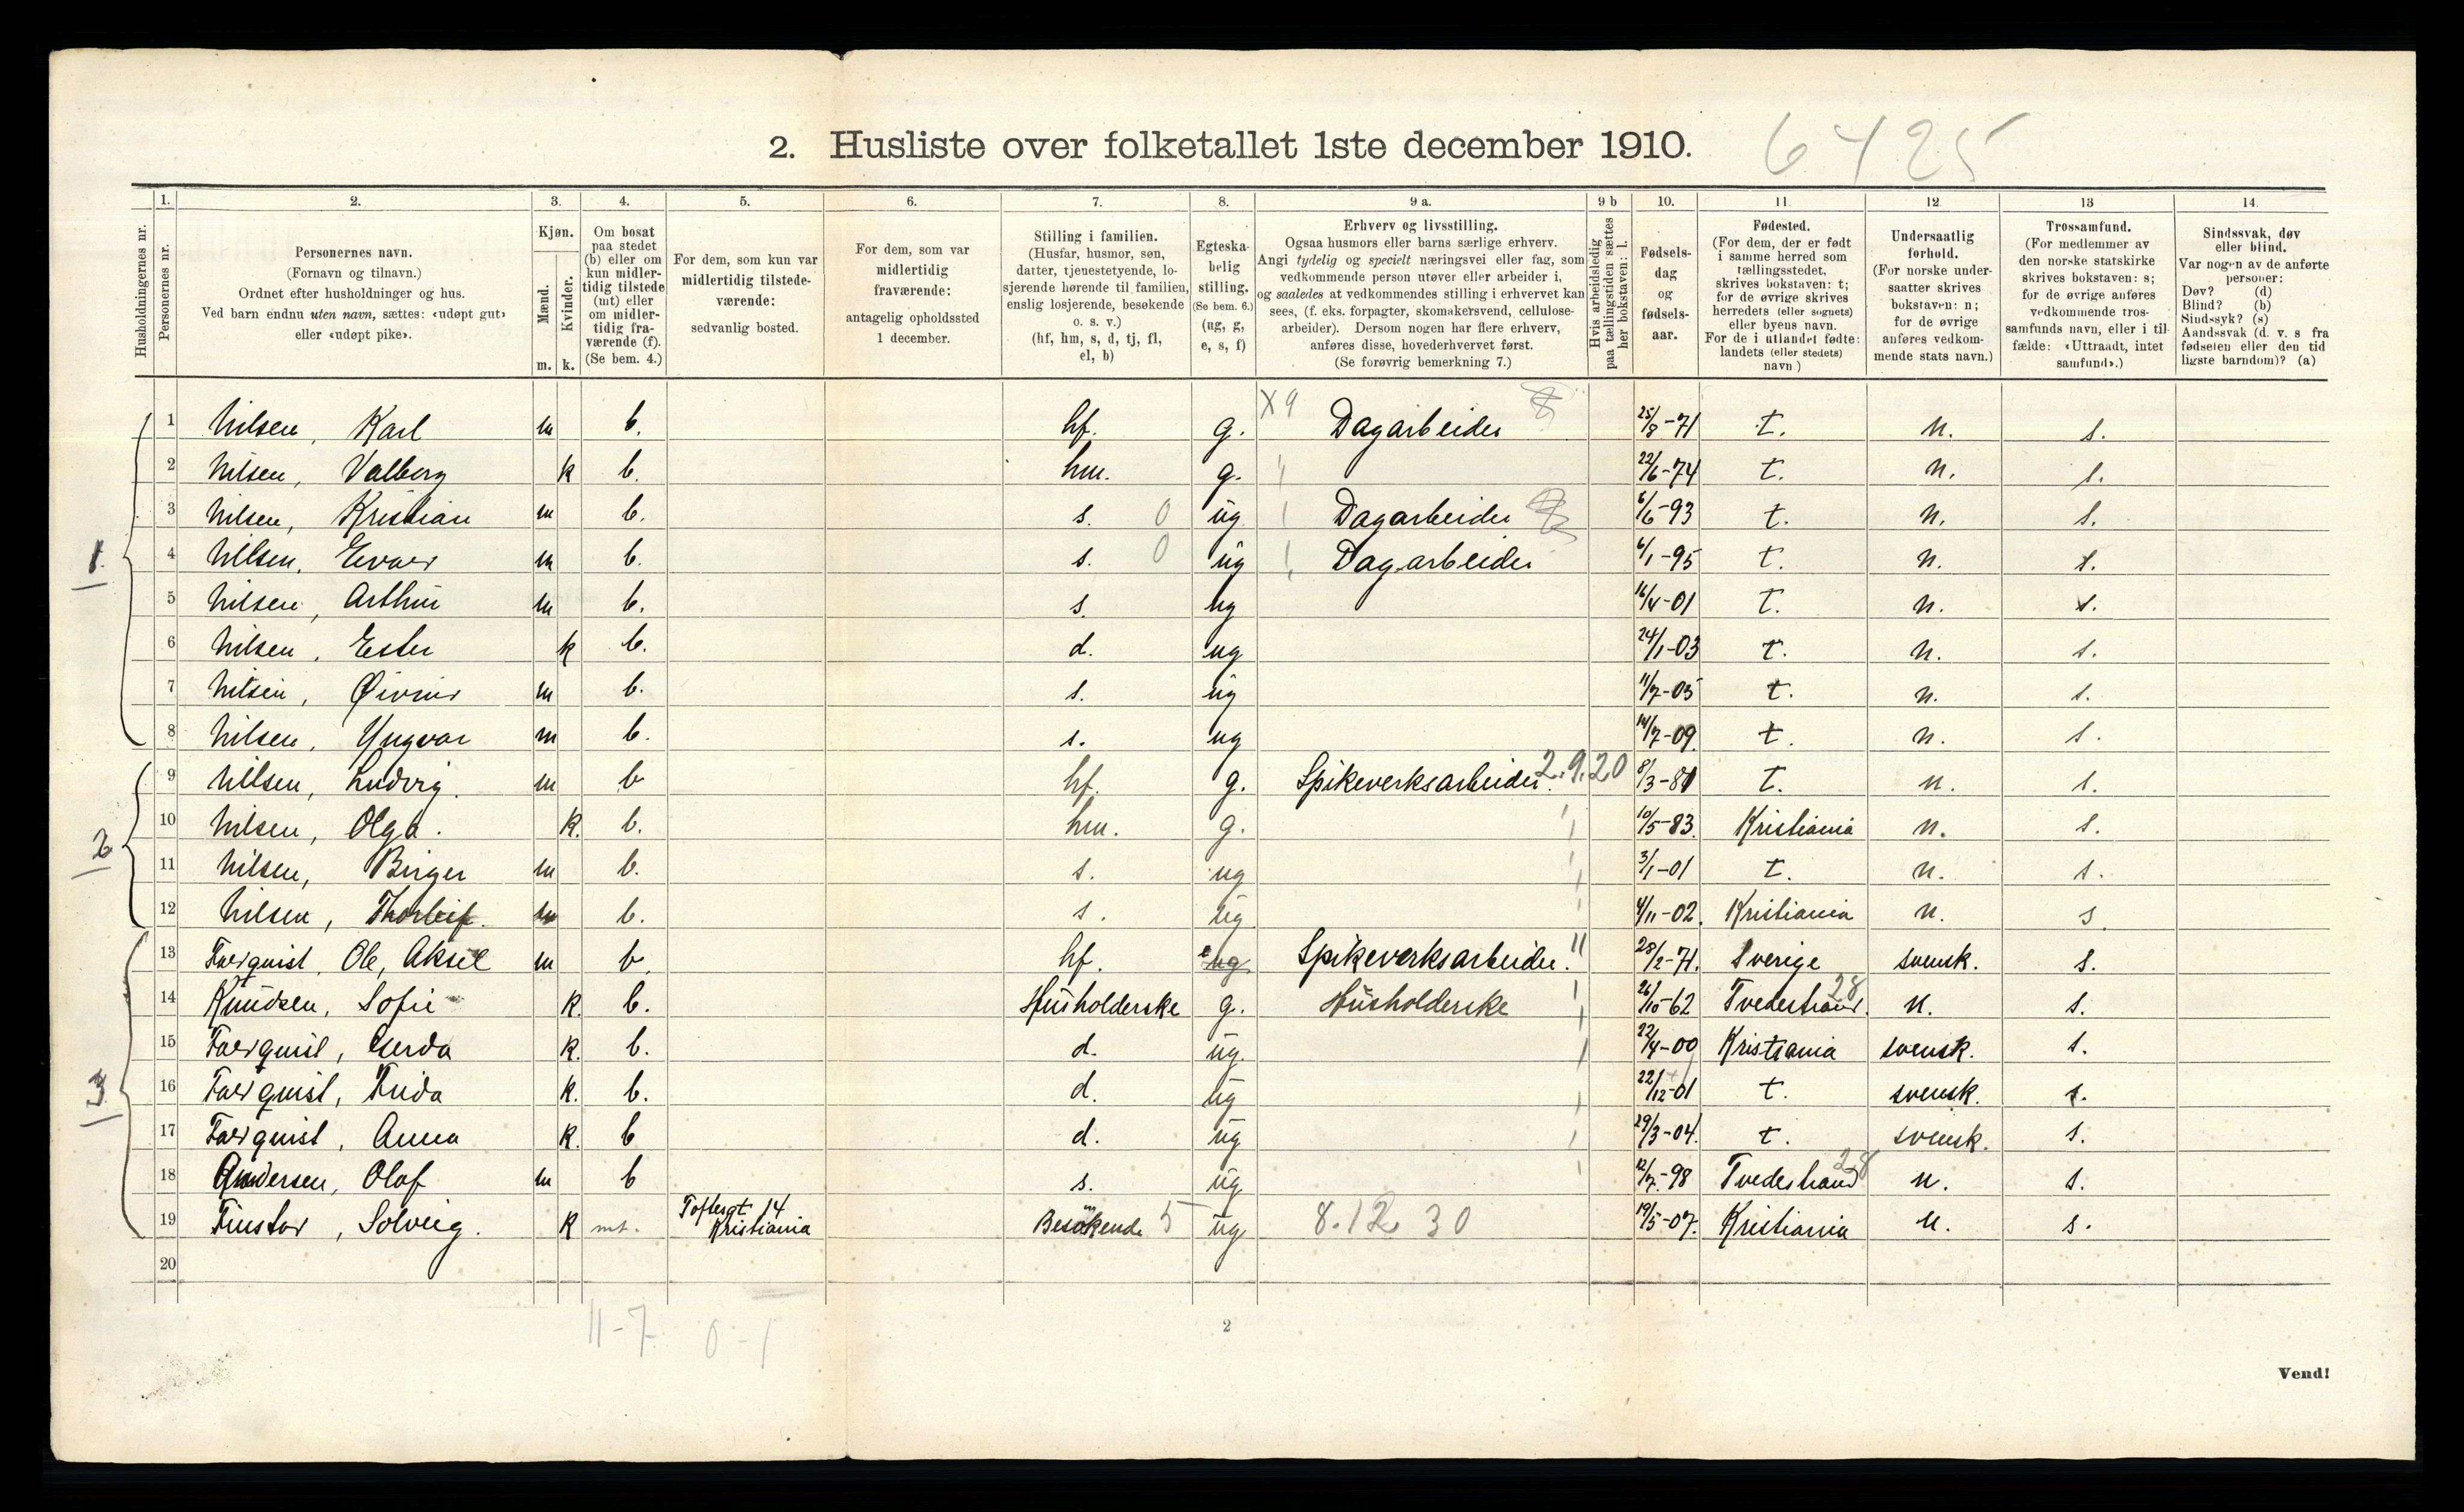 2. Husliste over folketallet 1ste december 1910. 6425
1. 2. 3. 4. 5. 6. 7. 8. 9 a. 9 b 10. 11 12. 13 14.
Husholdningernes nr.
Personernes nr.
Personernes navn.
(Fornavn og tilnavn.)
Ordnet efter husholdninger og hus.
Ved barn endnu uten navn, sættes: «udøpt gut»
eller «udøpt pike».
Kjøn.
Mænd.
Kvinder.
m. k.
Om bosat
paa stedet
(b) eller om
kun midler-
tidig tilstede
(mt) eller
om midler-
tidig fra-
værende (f).
(Se bem. 4.)
For dem, som kun var
midlertidig tilstede-
værende:
sedvanlig bosted.
For dem, som var
midlertidig
fraværende:
antagelig opholdssted
1 december.
Stilling i familien.
(Husfar, husmor, søn,
datter, tjenestetyende, lo-
sjerende hørende til familien,
enslig losjerende, besøkende
o. s. v.)
(hf, hm, s, d, tj, fl,
el, b)
Egteska-
belig
stilling.
(Se bem. 6.)
(ug, g,
e, s, f)
Erhverv og livsstilling.
Ogsaa husmors eller barns særlige erhverv.
Angi tydelig og specielt næringsvei eller fag, som
vedkommende person utøver eller arbeider i,
og saaledes at vedkommendes stilling i erhvervet kan
sees, (f. eks. forpagter, skomakersvend, cellulose-
arbeider). Dersom nogen har flere erhverv,
anføres disse, hovederhvervet først.
(Se forøvrig bemerkning 7.)
Hvis arbeidsledig
paa tællingstiden sættes
her bokstaven: l.
Fødsels-
dag
og
fødsels-
aar.
Fødested.
(For dem, der er født
i samme herred som
tællingsstedet,
skrives bokstaven: t;
for de øvrige skrives
herredets (eller sognets)
eller byens navn.
For de i utlandet fødte:
landets (eller stedets)
navn)
Undersaatlig
forhold.
(For norske under-
saatter skrives
bokstaven: n;
for de øvrige
anføres vedkom-
mende stats navn.)
Trossamfund.
(For medlemmer av
den norske statskirke
skrives bokstaven: s;
for de øvrige anføres
vedkommende tros-
samfunds navn, eller i til-
fælde: «Uttraadt, intet
samfund».)
Sindssvak, døv
eller blind.
Var nogen av de anførte
personer:
Døv? (d)
Blind? (b)
Sindssyk? (s)
Aandssvak (d. v. s fra
fødselen eller den tid
ligste barndom)? (a)
1 Nilsen, Karl m b. hf. g. X9 Dagarbeider 25/8-71 t. n. s.
2 Nilsen, Valborg k b. hm. g. 22/6-74 t. n. s.
3 Nilsen, Kristian m b. s. 0 ug Dagarbeider 6/6-93 t. n. s.
1. 4 Nilsen, m b. s. 0 ug Dagarbeider 6/1-95 t. n. s.
5 Nilsen, Arthur m b. s. ug 16/4-01 t. n. s.
6 Nilsen, Ester k b. d. ug 24/1-03 t. n. s.
7 Nilsen, m b. s. ug 11/7-05 t. n. s.
8 Nilsen, Yngvar m b. s. ug 14/7-09. t. n. s.
9 Nilsen, Ludvig. m b hf. g. Spikeverksarbeider. 2.9.20 8/3-81 t. n. s.
2 10 Nilsen, Olga. k. b. hm. g. 10/5-83. Kristiania n. s.
11 Nilsen, Birger m b. s. ug 3/1-01 t. n. s.
12 Nilsen, Thorleif. m b. s. ug 4/11-02. Kristiania n. s
13 Ole, Aksel m b. hf. e ug Spikeverksarbeider. 28/2-71. Sverige svensk. s.
14 Knudsen, Sofie k. b. Husholderske g. Husholderske 26/10-62 Tvedestrand. 28 n. s.
15 Gerda k. b. d. ug. 22/4-00 Kristiania svensk. s.
3 16 Frida k. b. d. ug 22/12-01 t. svensk. s.
17 Anna k. b d. ug 29/3-04. t. svensk. s.
18 Andersen, Olaf m b s. ug 12/7-98 Tvedestrand 28 n. s.
19 Solveig. k mt. Toftesgt. 14 Kristiania Besøkende 5 ug 8.12 30 19/5-07. Kristiania n. s.
20
11-7 0-1
2
Vend!